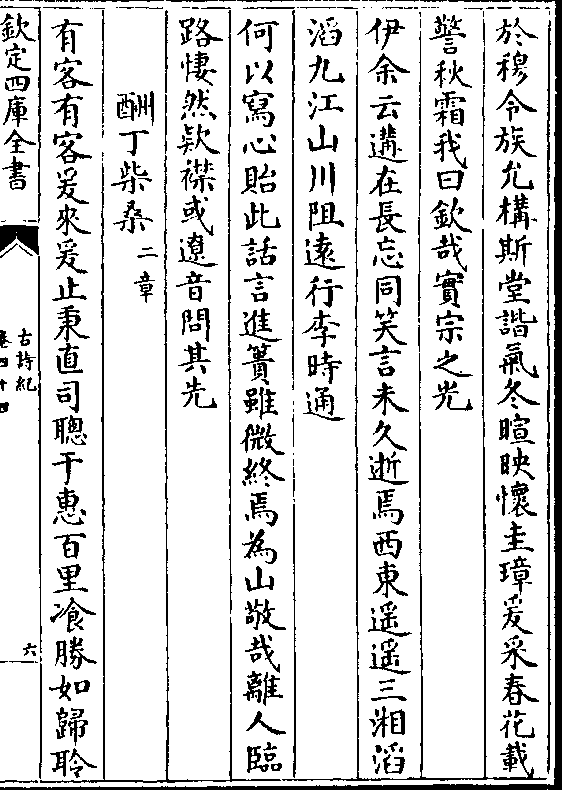 於穆令族允構斯堂諧氣冬暄映懷圭璋爰采春花載
警秋霜我曰欽哉實宗之光
伊余云遘在長忘同笑言未久逝焉西東遥遥三湘滔
滔九江山川阻遠行李時通
何以寫心貽此話言進簣雖微終焉為山敬哉離人臨
路悽然款襟或遼音問其先
酬丁柴桑二章
有客有客爰來爰止秉直司聰于惠百里飡勝如歸聆
欽定四庫全書
古詩紀
卷四十四
六